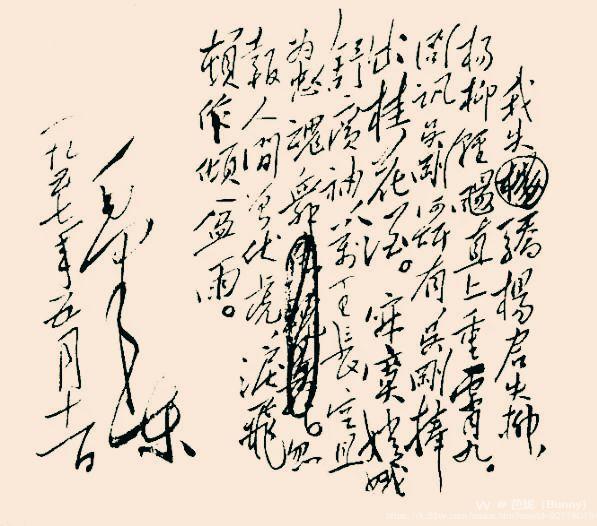 我失驕楊君失柳、
楊柳輕颺直上重霄九。
问訊吴剛何所有、吴剛捧
出桂花酒。寂寞嫦娥
舒廣袖、萬里長、空且
为忠魂舞。忽
報人间曾伏虎、淚飛
頓作傾盆雨。
毛泽东
一九五七年五月十一日
(Bunny)